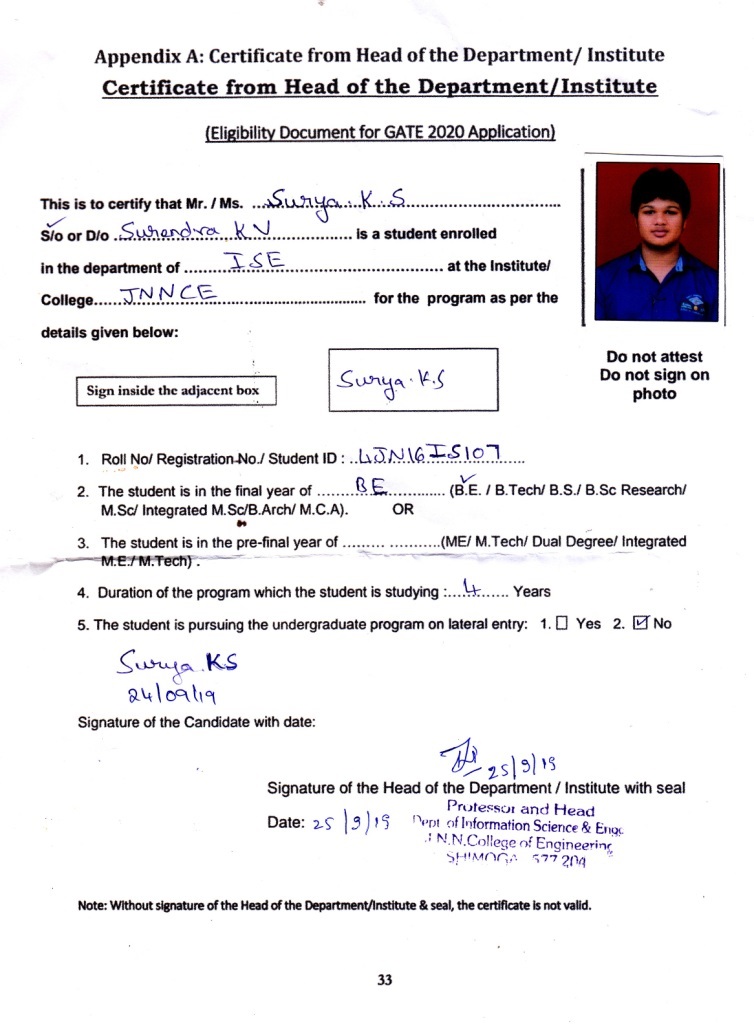 Appendix A: Certificate from Head of the Department/ Institute
Certificate from Head of the Department/Institute
(Eligibility Document for GATE 2020 Application)
This is to certify that Mr. / Ms. ...Surya. K. S..............................
S/o or D/o .Surendra. K V................... is a student enrolled
in the department of ..........ISE.................................. at the Institute/
College.....JNNCE.................................... for the program as per the
details given below:
Do not attest
Do not sign on
photo
Sign inside the adjacent box
Surya. K.S
1. Roll No/ Registration No./ Student ID : ..4JN16IS107......
2. The student is in the final year of .........BE............. (B.E. / B.Tech/ B.S./ B.Sc Research/
M.Sc/ Integrated M.Sc/B.Arch/ M.C.A). OR
3. The student is in the pre-final year of ......... ...........(ME/ M.Tech/ Dual Degree/ Integrated
M.E./ M.Tech) .
4. Duration of the program which the student is studying :....4....... Years
5. The student is pursuing the undergraduate program on lateral entry: 1. ☐ Yes 2. ☑ No
Surya. KS
24/09/19
Signature of the Candidate with date:
25/9/19
Signature of the Head of the Department / Institute with seal
Professor and Head
Date: 25/9/19
Dept of Information Science & Engg.
J.N.N.College of Engineering
SHIMOGA 577 204
Note: Without signature of the Head of the Department/Institute & seal, the certificate is not valid.
33